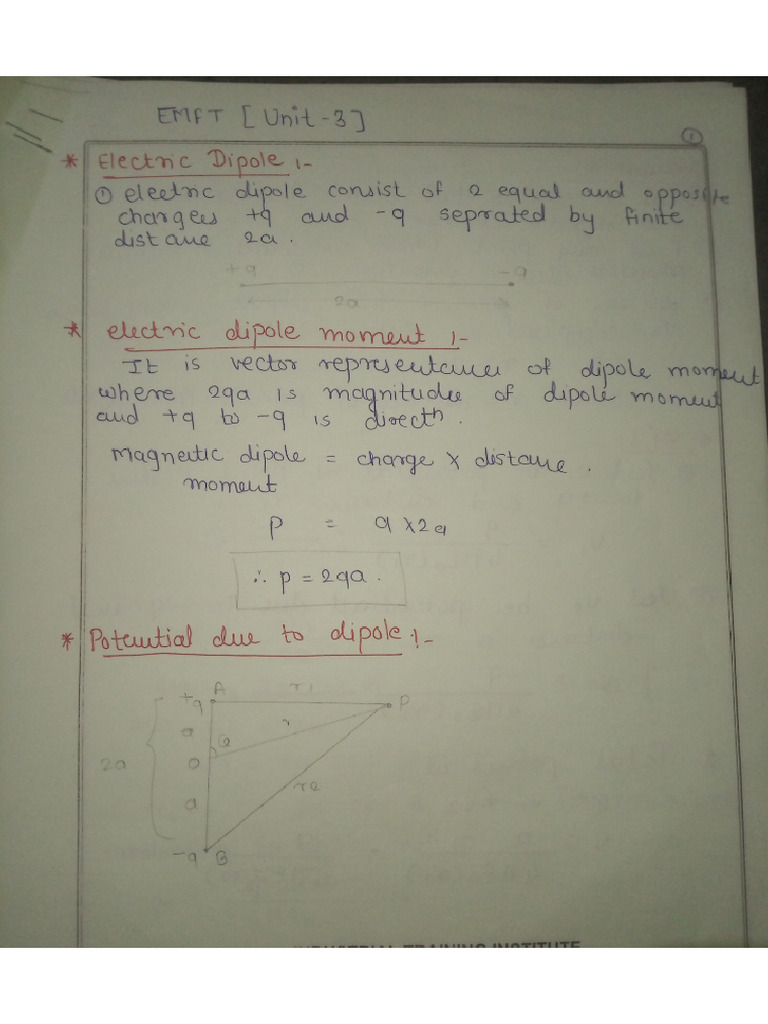 EMFT [Unit-3]
1
* Electric Dipole :-
① electric dipole consist of 2 equal and opposite
chargees +q and -q seprated by finite
distane 2a.
+q -q
2a
* electric dipole moment :-
It is vector representance of dipole moment
where 2qa is magnitude of dipole moment
and +q to -q is directn.
Magneitic dipole = charge x distance.
moment
P = q x 2a
∴ p = 2qa.
* Potential due to dipole :-
+q A r1 P
a θ r
2a O
a r2
-q B
INDUSTRIAL TRAINING INSTITUTE